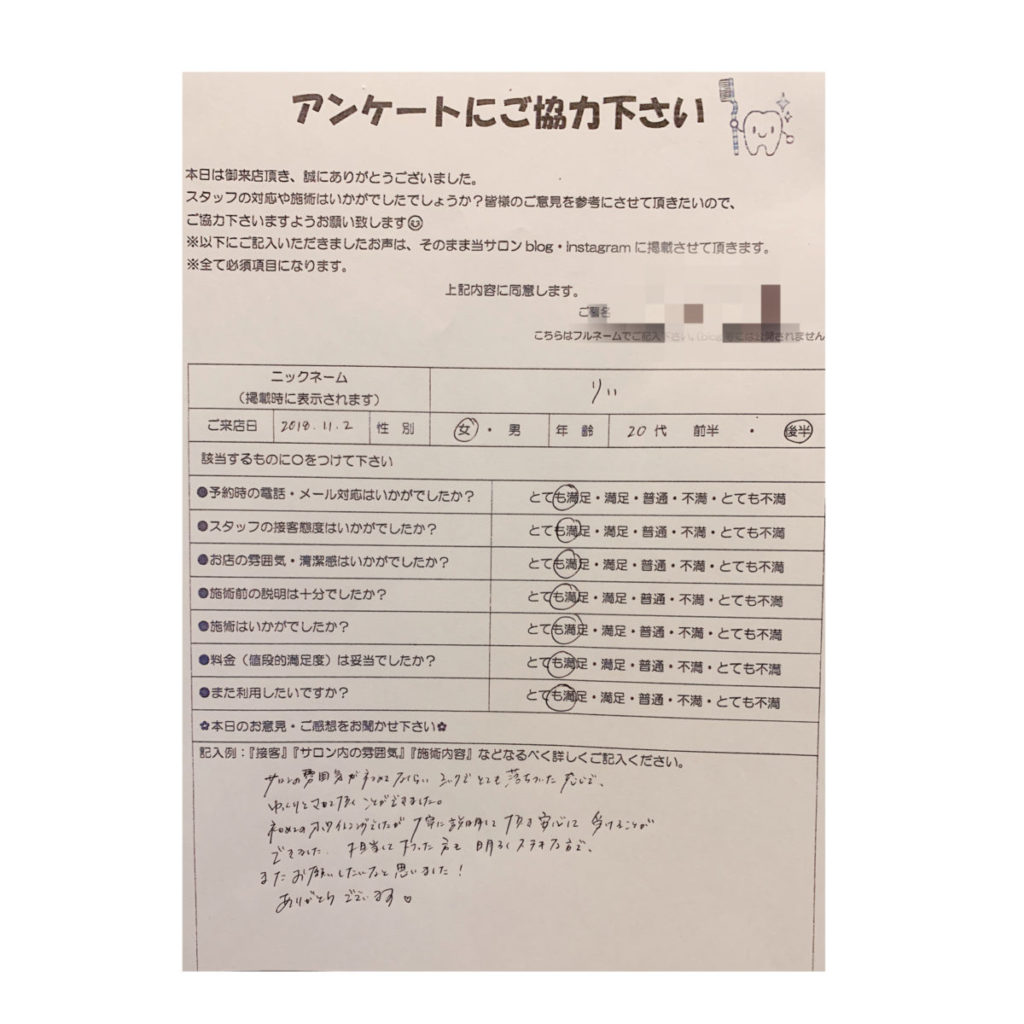 アンケートにご協力下さい
本日は御来店頂き、誠にありがとうございました。
スタッフの対応や施術はいかがでしたでしょうか？皆様のご意見を参考にさせて頂きたいので、
ご協力下さいますようお願い致します
※以下にご記入いただきましたお声は、そのまま当サロン blog・instagram に掲載させて頂きます。
※全て必須項目になります。
上記内容に同意します。
ご署名
こちらはフルネームでご記入下さい。(blog等には公開されません
ニックネーム
（掲載時に表示されます） りぃ
ご来店日 2018.11.2 性 別 女・男 年 齢 20代 前半 ・ 後半
該当するものに〇をつけて下さい
●予約時の電話・メール対応はいかがでしたか？ とても満足・満足・普通・不満・とても不満
●スタッフの接客態度はいかがでしたか？ とても満足・満足・普通・不満・とても不満
●お店の雰囲気・清潔感はいかがでしたか？ とても満足・満足・普通・不満・とても不満
●施術前の説明は十分でしたか？ とても満足・満足・普通・不満・とても不満
●施術はいかがでしたか？ とても満足・満足・普通・不満・とても不満
●料金（値段的満足度）は妥当でしたか？ とても満足・満足・普通・不満・とても不満
●また利用したいですか？ とても満足・満足・普通・不満・とても不満
✿本日のお意見・ご感想をお聞かせ下さい✿
記入例：『接客』『サロン内の雰囲気』『施術内容』などなるべく詳しくご記入ください。
サロンの雰囲気が とても落ちついた感じで、
ゆっくりと ことができました。
初めてのホワイトニングでしたが 丁寧に説明して 頂き安心に 受けることが
できました。担当して下さった方も 明るくステキな方で、
またお願いしたいなと思いました！
ありがとうございます♡